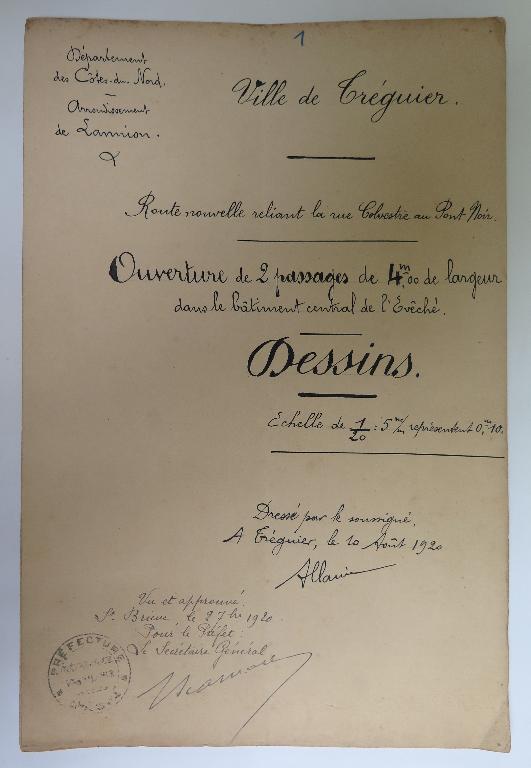 1
Département
des Côtes-du-Nord.
Arrondissement
de Lannion.
Ville de Tréguier.
Route nouvelle reliant la rue Colvestre au Pont Noir.
Ouverture de 2 passages de 4m,00 de largeur
dans le bâtiment central de l'Evêché.
Dessins.
Echelle de 1/20 : 5 m/m représentent 0,m10.
Dressé par le soussigné,
A Tréguier, le 10 Août 1920
Vu et approuvé.
St Brieuc, le 27bre 1920
Pour le Préfet :
Le Secrétaire Général
PRÉFECTURE